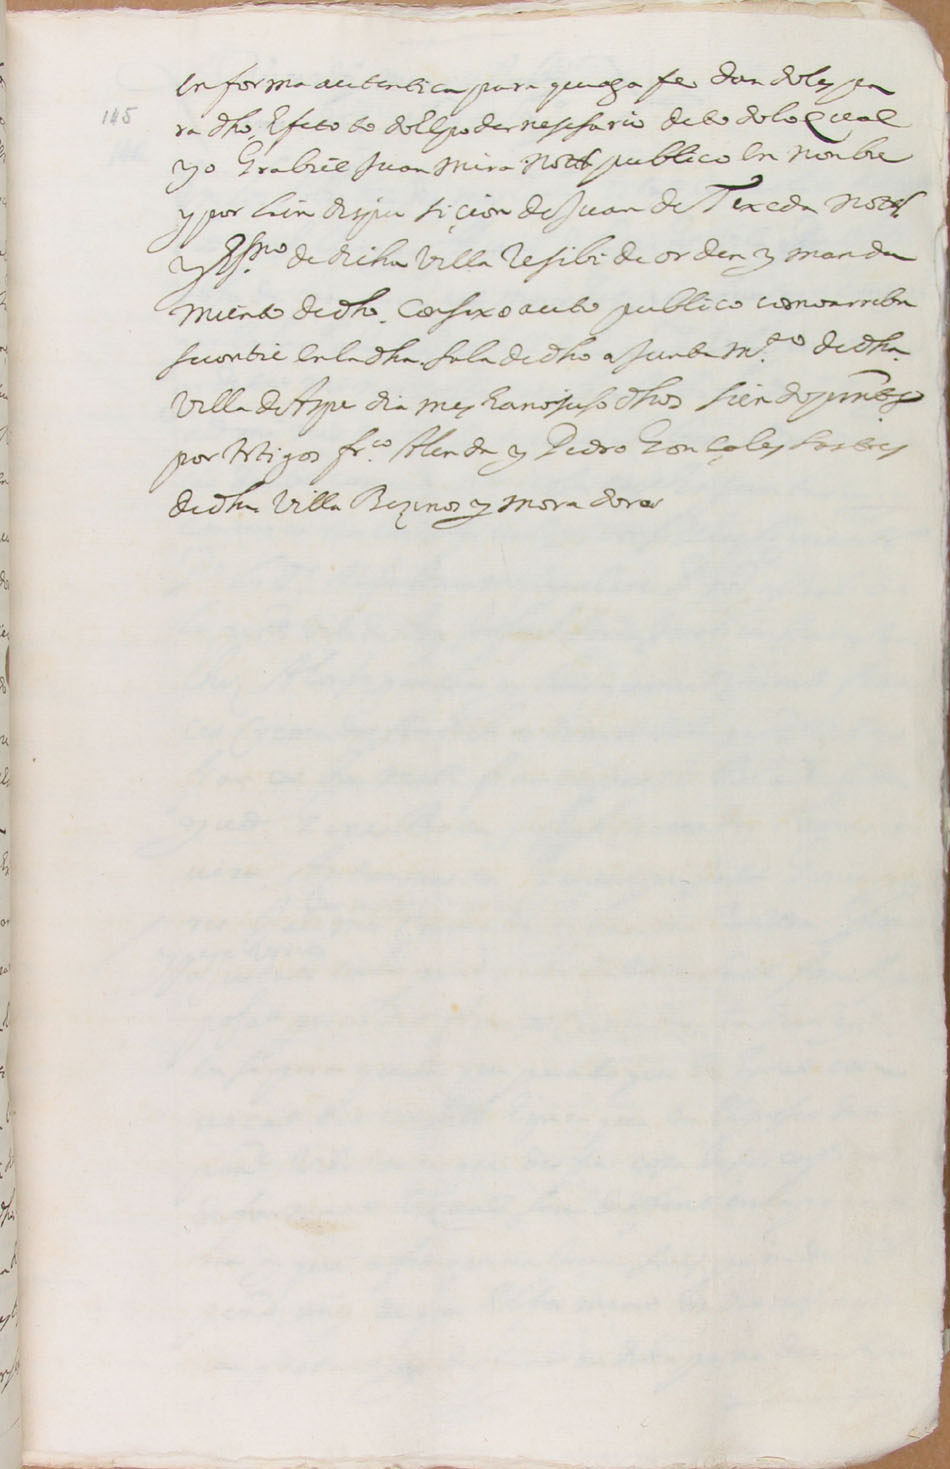 145
en forma autentica para que aga fe dandoles pa
ra dho Efeto todo El poder nesesario de todo lo qual
yo Grabiel Juan Mira Nott publico en nonbre
y por la in dispusiçion de Juan de Texeda Nott
y Essno de dicha Villa Resibi de orden y manda
miento de dho. Consexo auto publico como arriba
se contie en la dha sala de dho a Junta mto de dha
Villa de Aspe dia mes Eano suso dhos siendo
por tstigos frco Alenda y Pedro Gonçales sastres
de dha Villa Beçinos y moradores